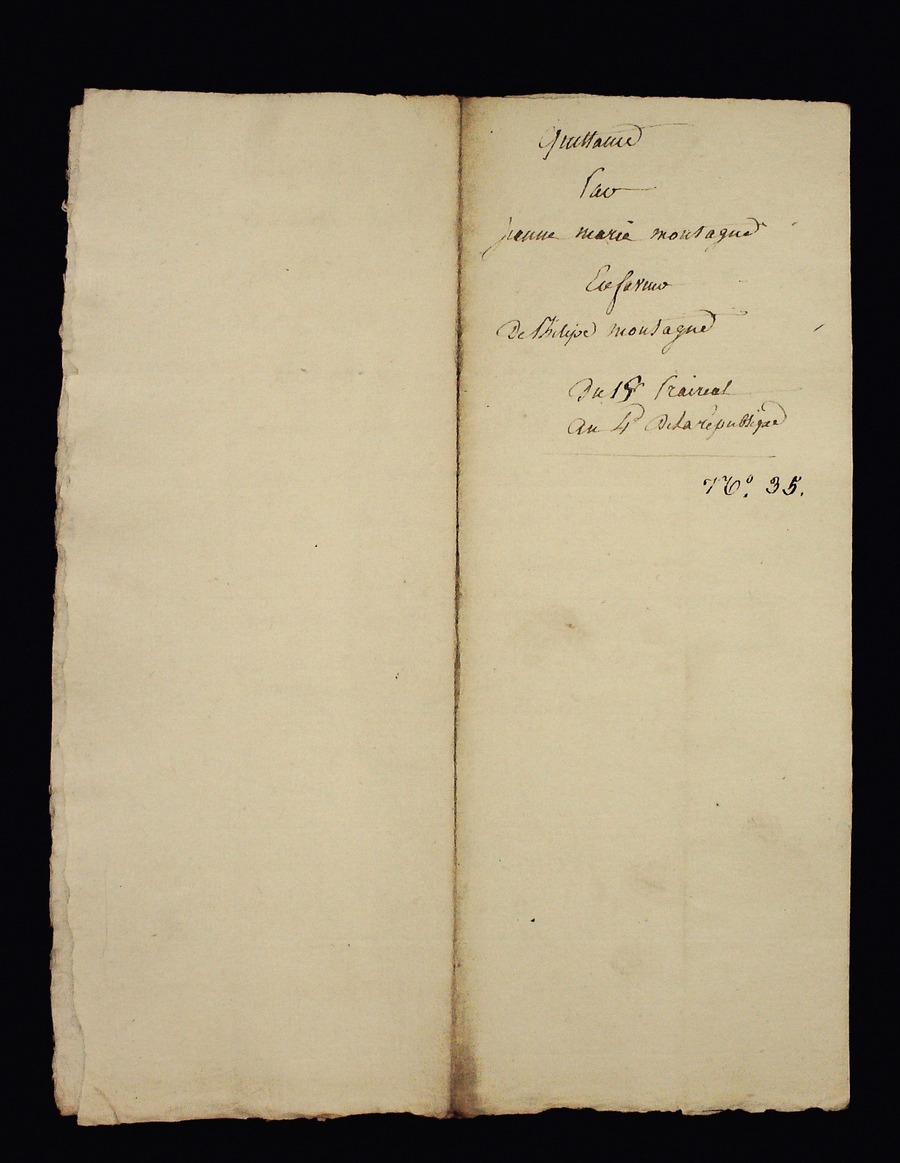 Quittance
Par
jeanne marie montagne
En faveur
De Philipe montagne
Du Praireal
An 4e De la république
No. 35.